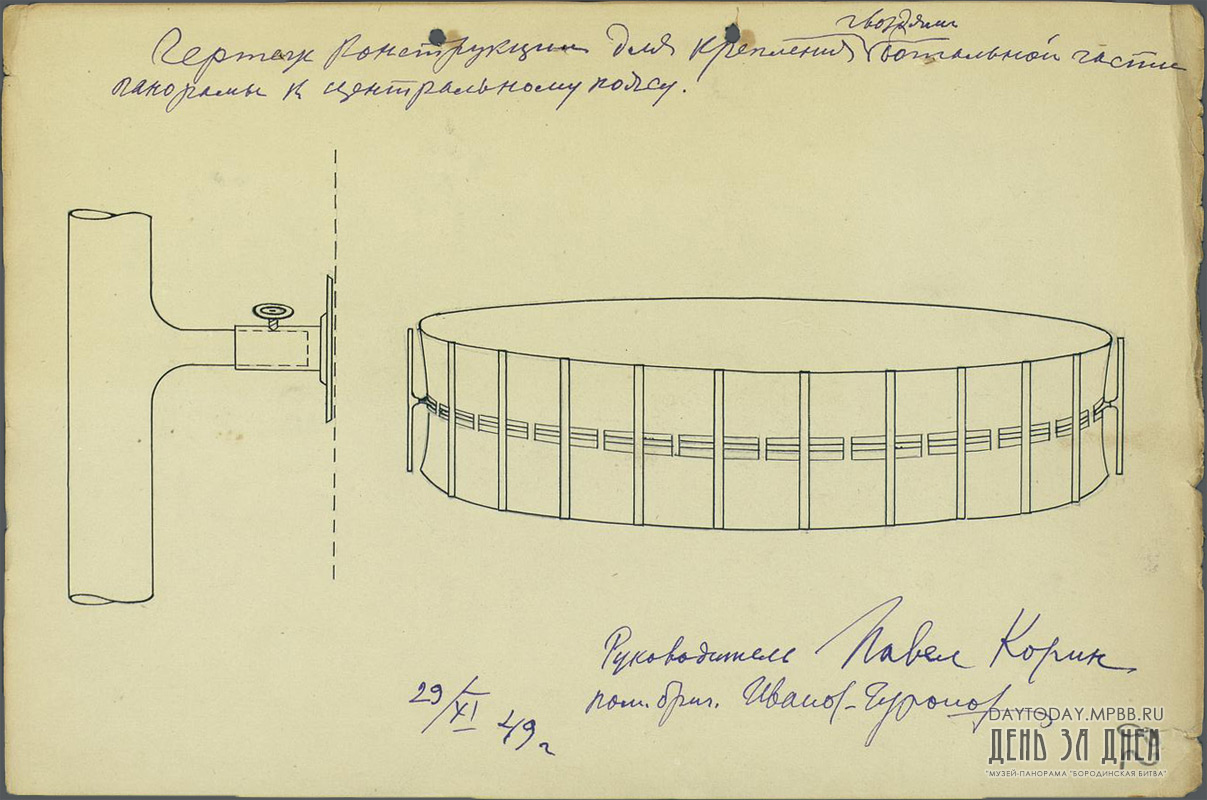 гвоздями
Чертеж конструкции для крепления батальной части
панорамы к центральному поясу.
Руководитель Павел Корин
пом. бриг. Иванов-Чуронов
29/XI 49 г
DAYTODAY.MPBB.RU
ДЕНЬ ЗА ДНЕМ
"МУЗЕЙ-ПАНОРАМА "БОРОДИНСКАЯ БИТВА"